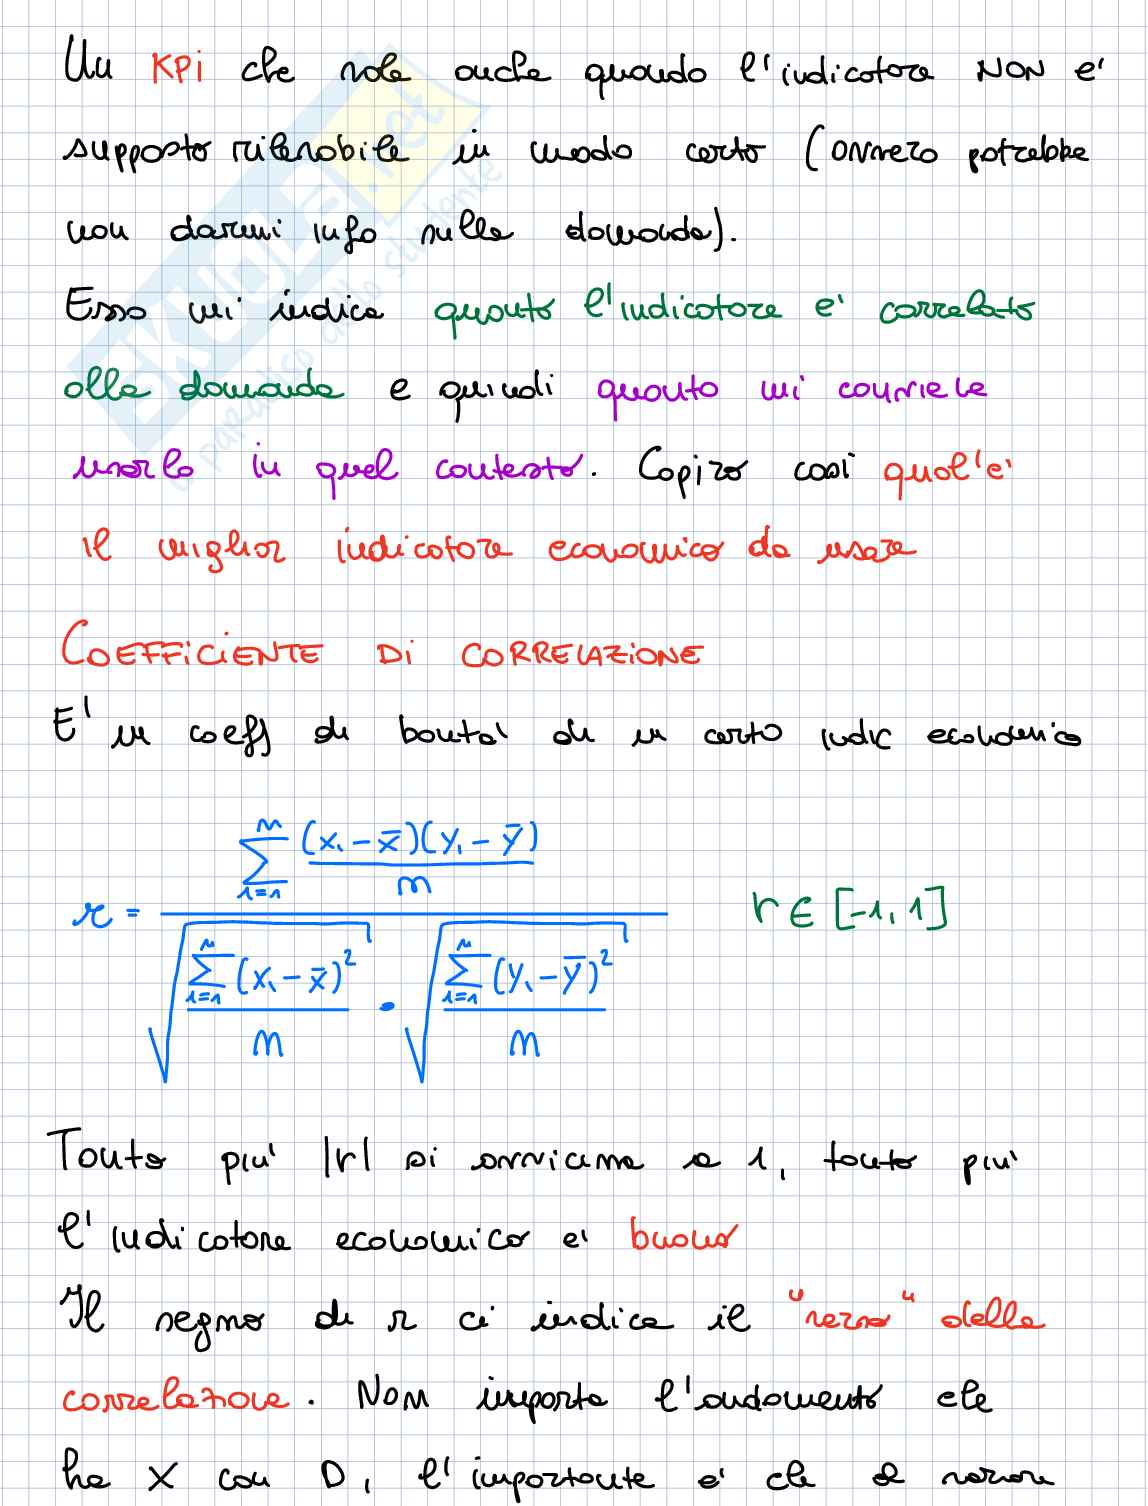 Un KPi che vale anche quando l'indicatore NON e'
supposto rilevabile in modo certo (ovvero potrebbe
non darmi info sulla domanda).
Esso mi indica quanto l'indicatore e' correlato
alla domanda e quindi quanto mi conviene
usarlo in quel contesto. Capirò così qual'e'
il miglior indicatore economico da usare
COEFFICIENTE Di CORRELAZIONE
E' un coeff di bonta' di un certo indic economico
r = \frac{\sum_{i=1}^{n} \frac{(x_i - \bar{x})(y_i - \bar{y})}{n}}{\sqrt{\frac{\sum_{i=1}^{n} (x_i - \bar{x})^2}{n}} \cdot \sqrt{\frac{\sum_{i=1}^{n} (y_i - \bar{y})^2}{n}}} r ∈ [-1, 1]
Tanto piu' |r| si avvicina a 1, tanto piu'
l'indicatore economico e' buono
Il segno di r ci indica il "verso" della
correlazione. Non importa l'andamento che
ha X con D, l'importante e' che al variare
SKUOLA.net
il paradiso dello studente